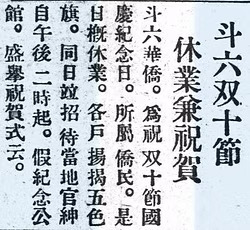 斗六双十節
休業兼祝賀
斗六華僑。為祝双十節國
慶紀念日。所屬僑民。是
日概休業。各戶揚揭五色
旗。同日竝招待當地官紳
自午後二時起。假紀念公
館。盛擧祝賀式云。